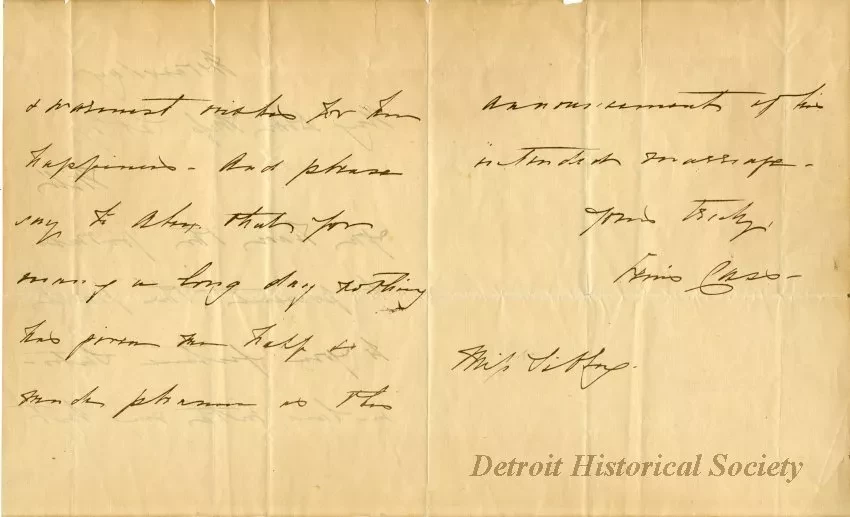 & warmest wishes for her
happiness - And please
say to Alex. that for
many a long day nothing
has given me half so
much pleasure as this
announcement of his
intended marriage -
Yours truly,
Lewis Cass -
Miss Sibley.
Detroit Historical Society